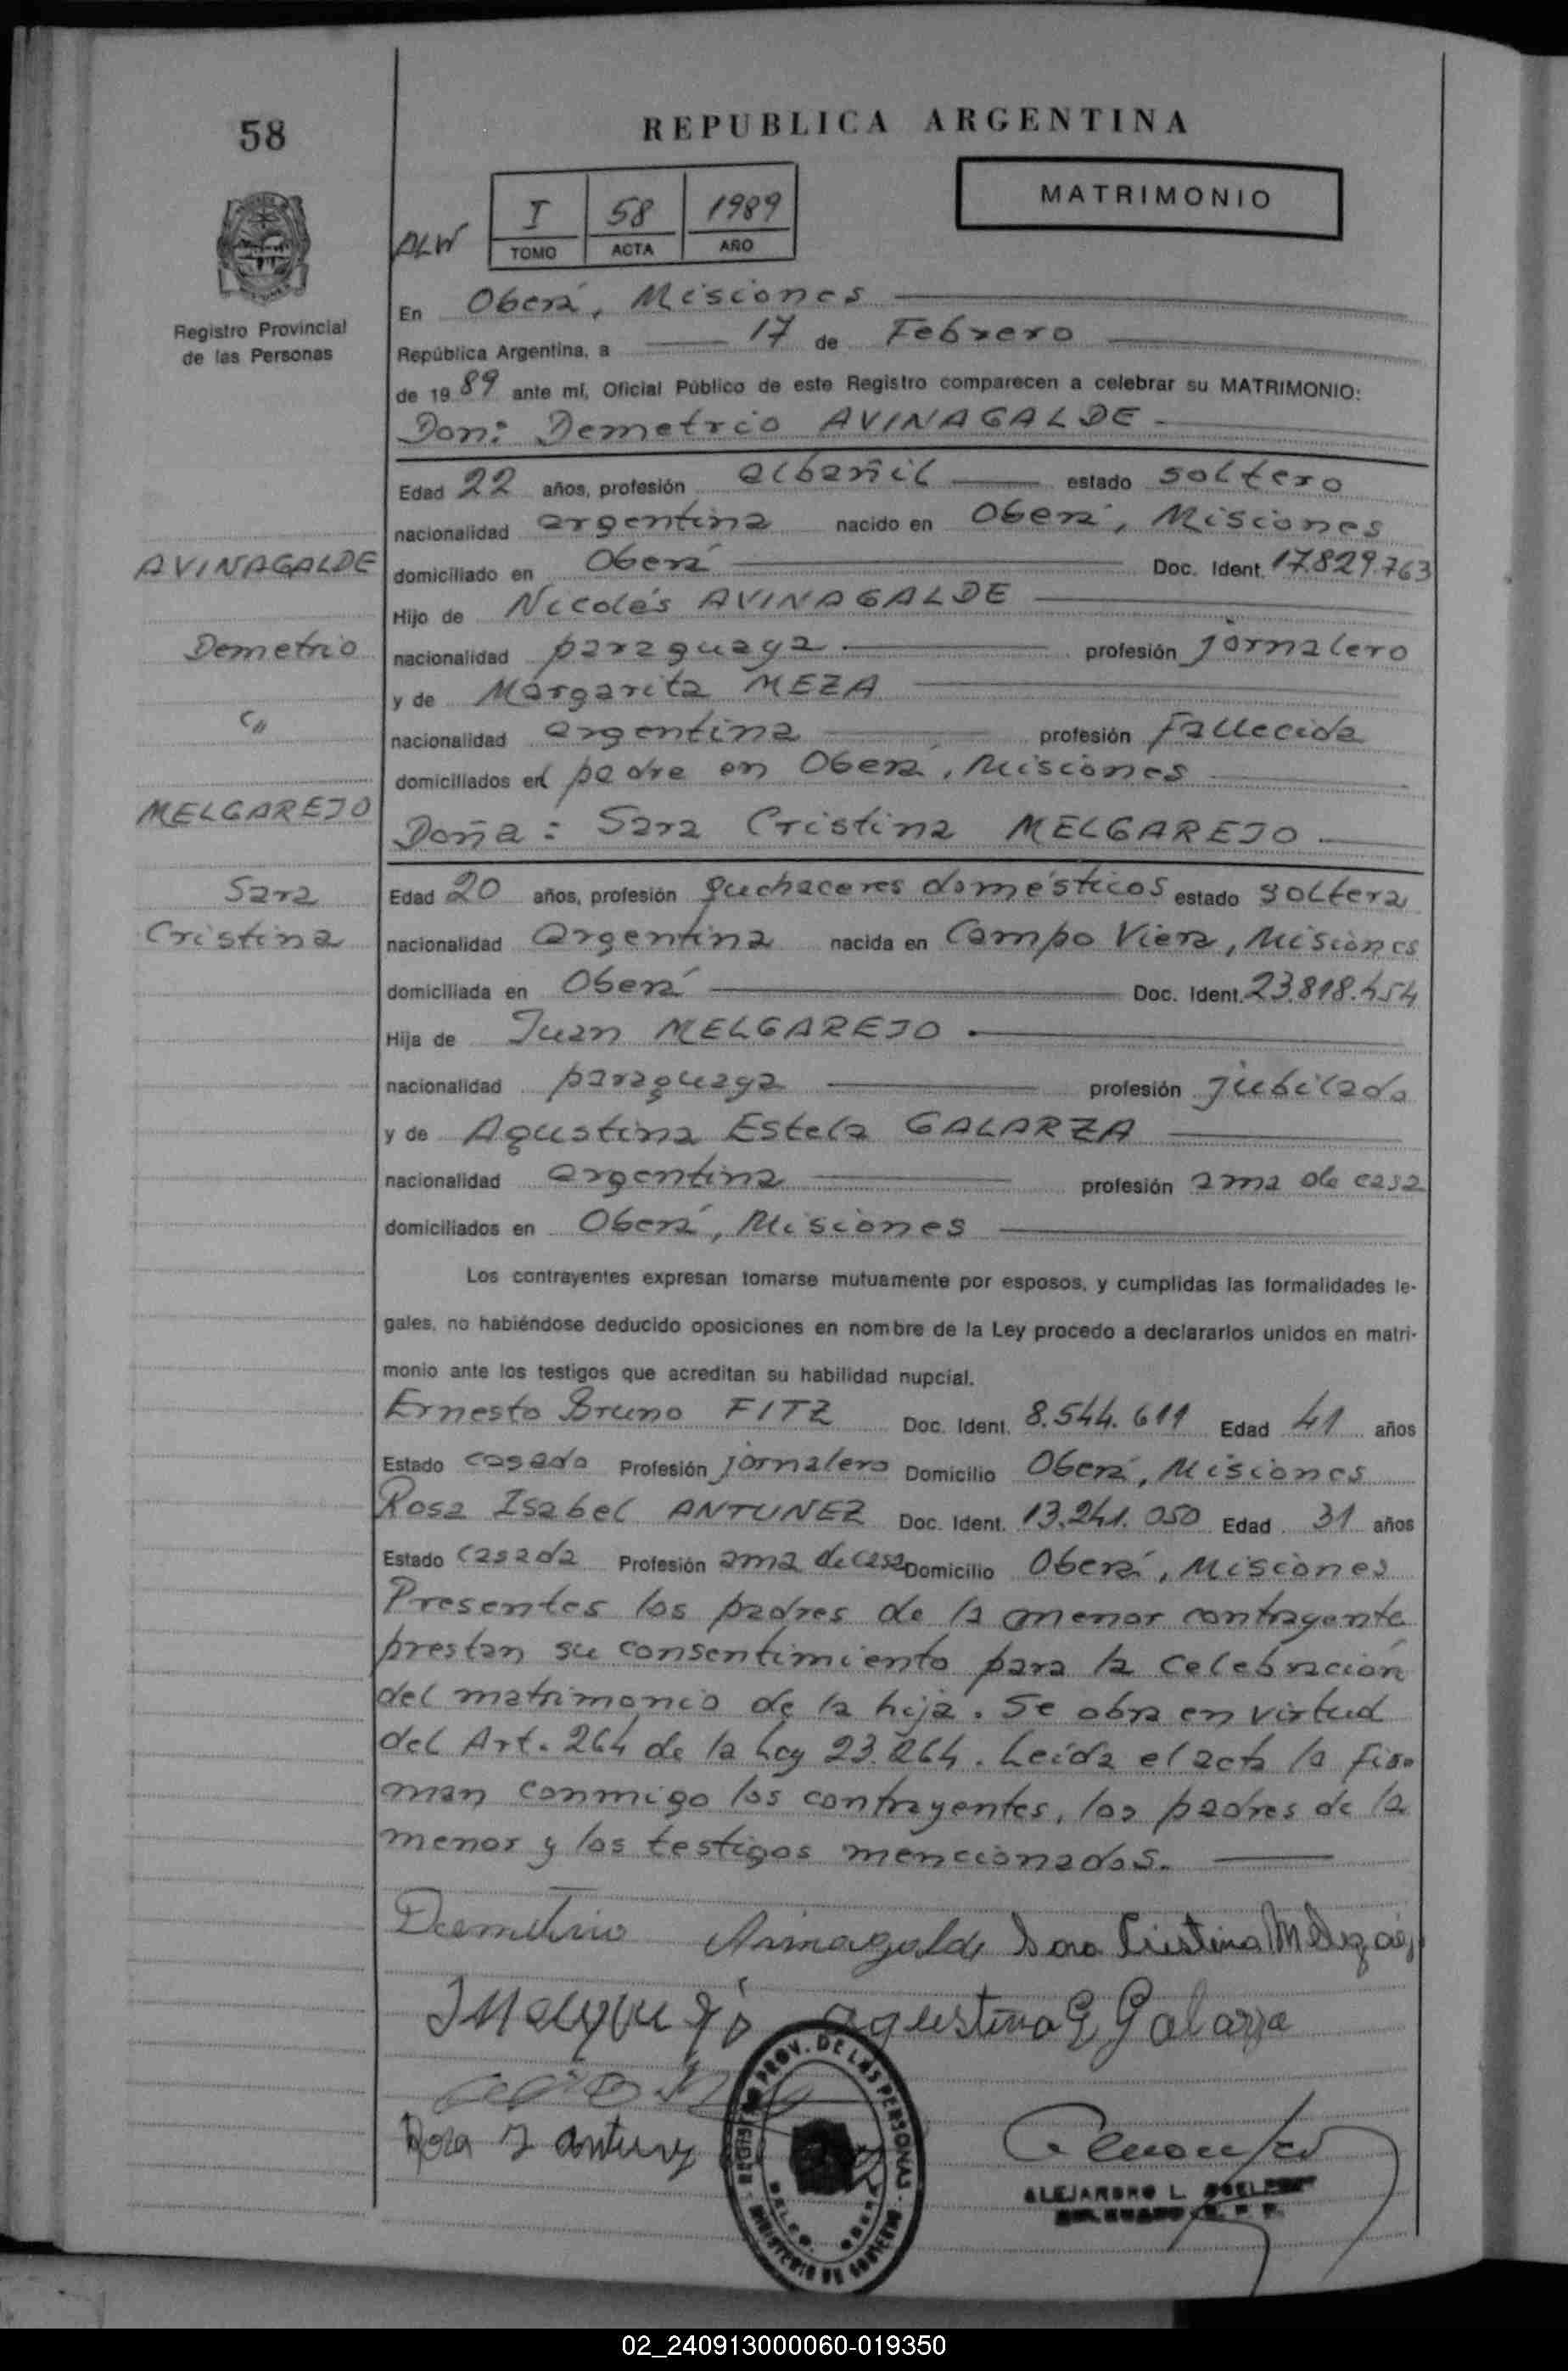 58
REPUBLICA ARGENTINA
MATRIMONIO
I 58 1989
TOMO ACTA AÑO
ALW
Registro Provincial
de las Personas
En Oberá, Misiones
República Argentina, a 17 de Febrero
de 19 89 ante mí, Oficial Público de este Registro comparecen a celebrar su MATRIMONIO:
Don: Demetrio AVINAGALDE
Edad 22 años, profesión albañil estado soltero
nacionalidad argentina nacido en Oberá, Misiones
AVINAGALDE
domiciliado en Oberá Doc. Ident. 17.829.763
Hijo de Nicolás AVINAGALDE
Demetrio
nacionalidad paraguaya profesión jornalero
y de Margarita MEZA
c//
nacionalidad argentina profesión Fallecida
domiciliados en padre en Oberá, Misiones
MELGAREJO
Doña: Sara Cristina MELGAREJO
Sara
Edad 20 años, profesión quehaceres domésticos estado soltera
Cristina
nacionalidad argentina nacida en Campo Viera, Misiones
domiciliada en Oberá Doc. Ident. 23.818.454
Hija de Juan MELGAREJO
nacionalidad paraguaya profesión jubilado
y de Agustina Estela GALARZA
nacionalidad argentina profesión ama de casa
domiciliados en Oberá, Misiones
Los contrayentes expresan tomarse mutuamente por esposos, y cumplidas las formalidades le-
gales, no habiéndose deducido oposiciones en nombre de la Ley procedo a declararlos unidos en matri-
monio ante los testigos que acreditan su habilidad nupcial.
Ernesto Bruno FITZ Doc. Ident. 8.544.611 Edad 41 años
Estado casado Profesión jornalero Domicilio Oberá, Misiones
Rosa Isabel ANTUNEZ Doc. Ident. 13.241.050 Edad 31 años
Estado casada Profesión ama de casa Domicilio Oberá, Misiones
Presentes los padres de la menor contrayente
prestan su consentimiento para la celebración
del matrimonio de la hija. Se obra en virtud
del Art. 264 de la Ley 23.264. Leída el acta la fir-
man conmigo los contrayentes, los padres de la
menor y los testigos mencionados.
Demetrio Avinagalde Sara Cristina Melgarejo
Agustina E Galarza
Rosa I Antunez
REGISTRO PROV. DE LAS PERSONAS
MINISTERIO DE GOBIERNO
DELEG. OBERA
ALEJANDRO L.
02_240913000060-019350